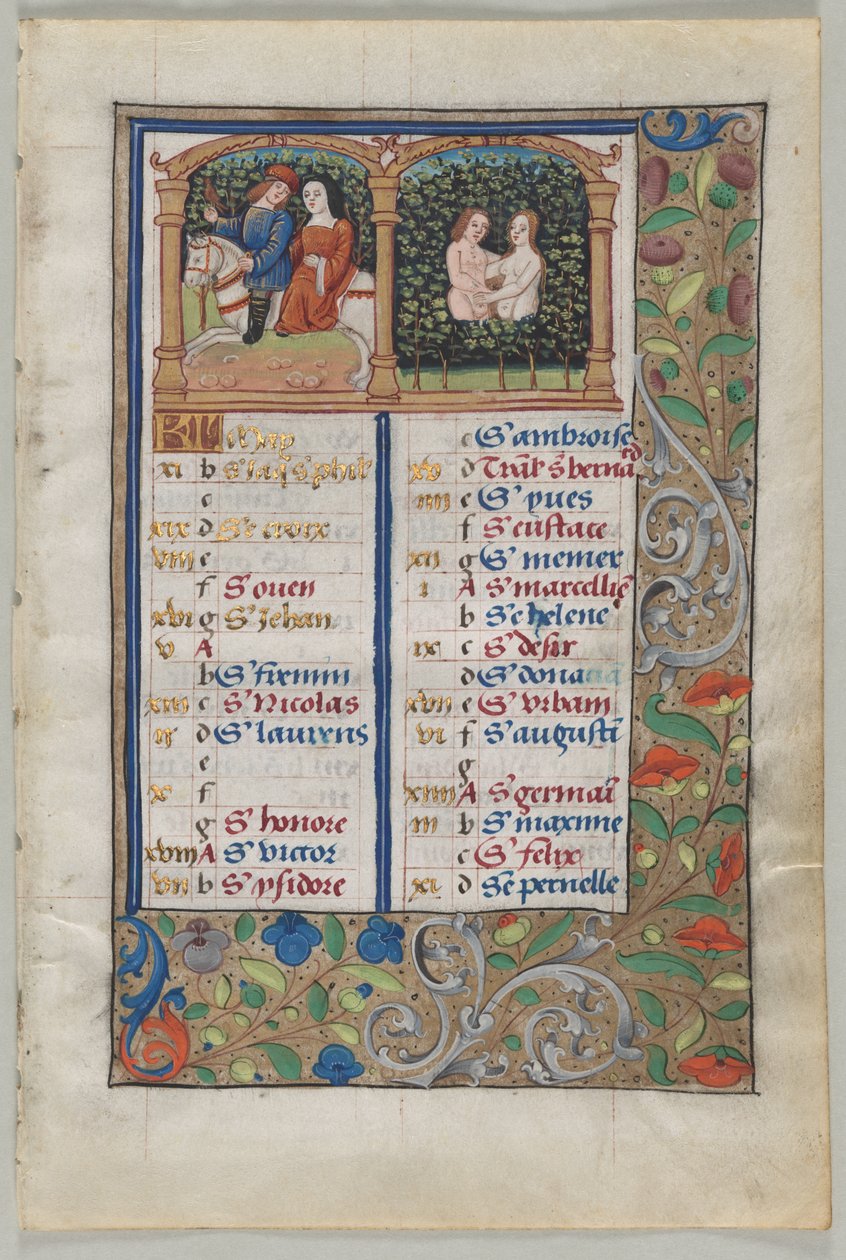 KL May
xi b S' Jaq' S' phil'
c
xix d Se croix
viii e
f S' ouen
xvi g S' Jehan
v A
b S' firmin
xiii c S' Nicolas
ii d S' laurens
e
x f
g S' honore
xviii A S' victor
vii b S' ysidore
c S' ambroise
xv d Trãsl' s' bernard
iiii e S' yues
f S' eustace
xii g S' memer
i A S' marcellie
b Se helene
ix c S' desir
d S' donacia
xvii e S' vrbam
vi f S' augusti
g
xiiii A S' germai
iii b S' maxime
c S' felix
xi d Se pernelle